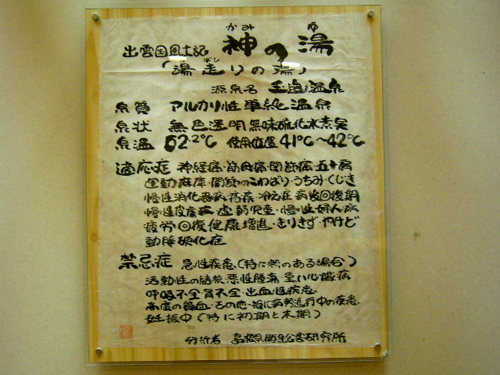 出雲国風土記 神の湯
かみ ゆ
「湯走りの湯」
ばし
源泉名 玉造温泉
泉質 アルカリ性単純温泉
泉状 無色透明無味硫化水素臭
泉温 62.2℃ 使用位置 41℃〜42℃
適応症 神経痛・筋肉痛・関節痛・五十肩
運動麻痺・関節のこわばり・うちみ・くじき
慢性消化器病・痔疾・冷え症・病後回復期
慢性皮膚病・虚弱児童・慢性婦人病
疲労回復健康増進・きりきず・やけど
動脈硬化症
禁忌症 急性疾患(特に熱のある場合)
活動性の結核・悪性腫瘍・重い心臓病
呼吸不全・腎不全・出血性疾患
高度の貧血・その他一般に病勢進行中の疾患
妊娠中(特に初期と末期)
分析者 島根県衛生公害研究所